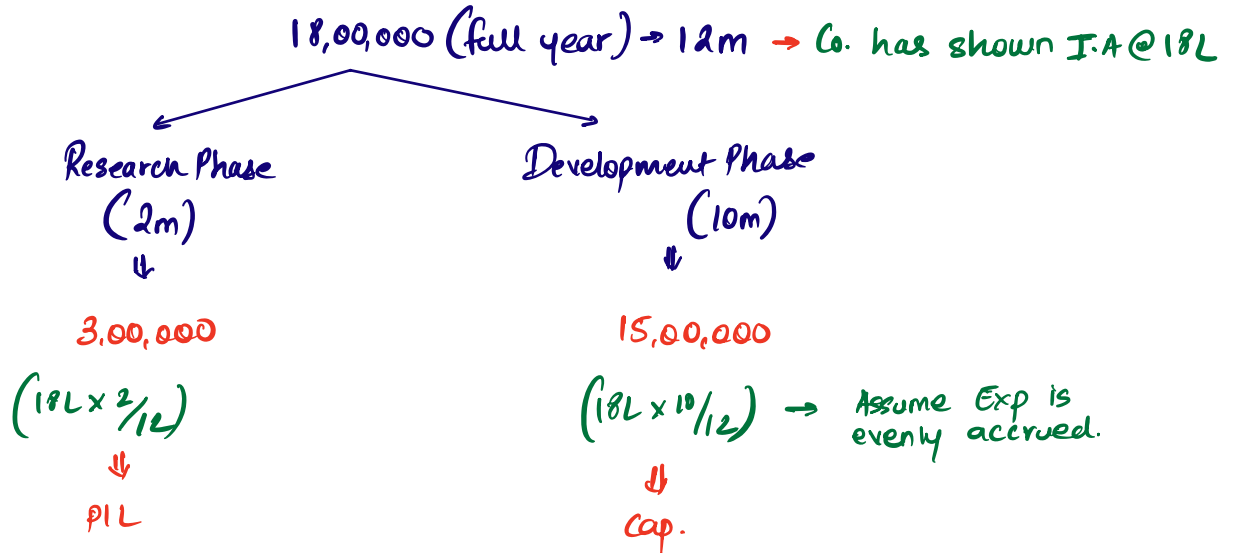 18,00,000 (full year) → 12m → Co. has shown I.A @ 18L
Research Phase
(2m)
3,00,000
(18L x 2/12)
P/L
Development Phase
(10m)
15,00,000
(18L x 10/12) → Assume Exp is
evenly accrued.
Cap.